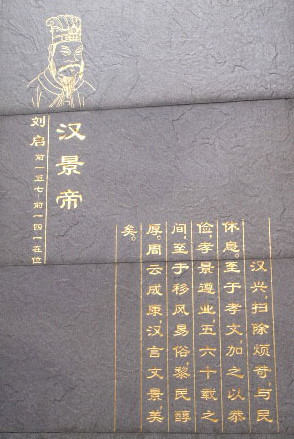 汉景帝
刘启 前一五七-前一四一在位
汉兴，扫除烦苛，与民
休息。至于孝文，加之以恭
俭，孝景遵业，五六十载之
间，至于移风易俗，黎民醇
厚。周云成康，汉言文景，美
矣。